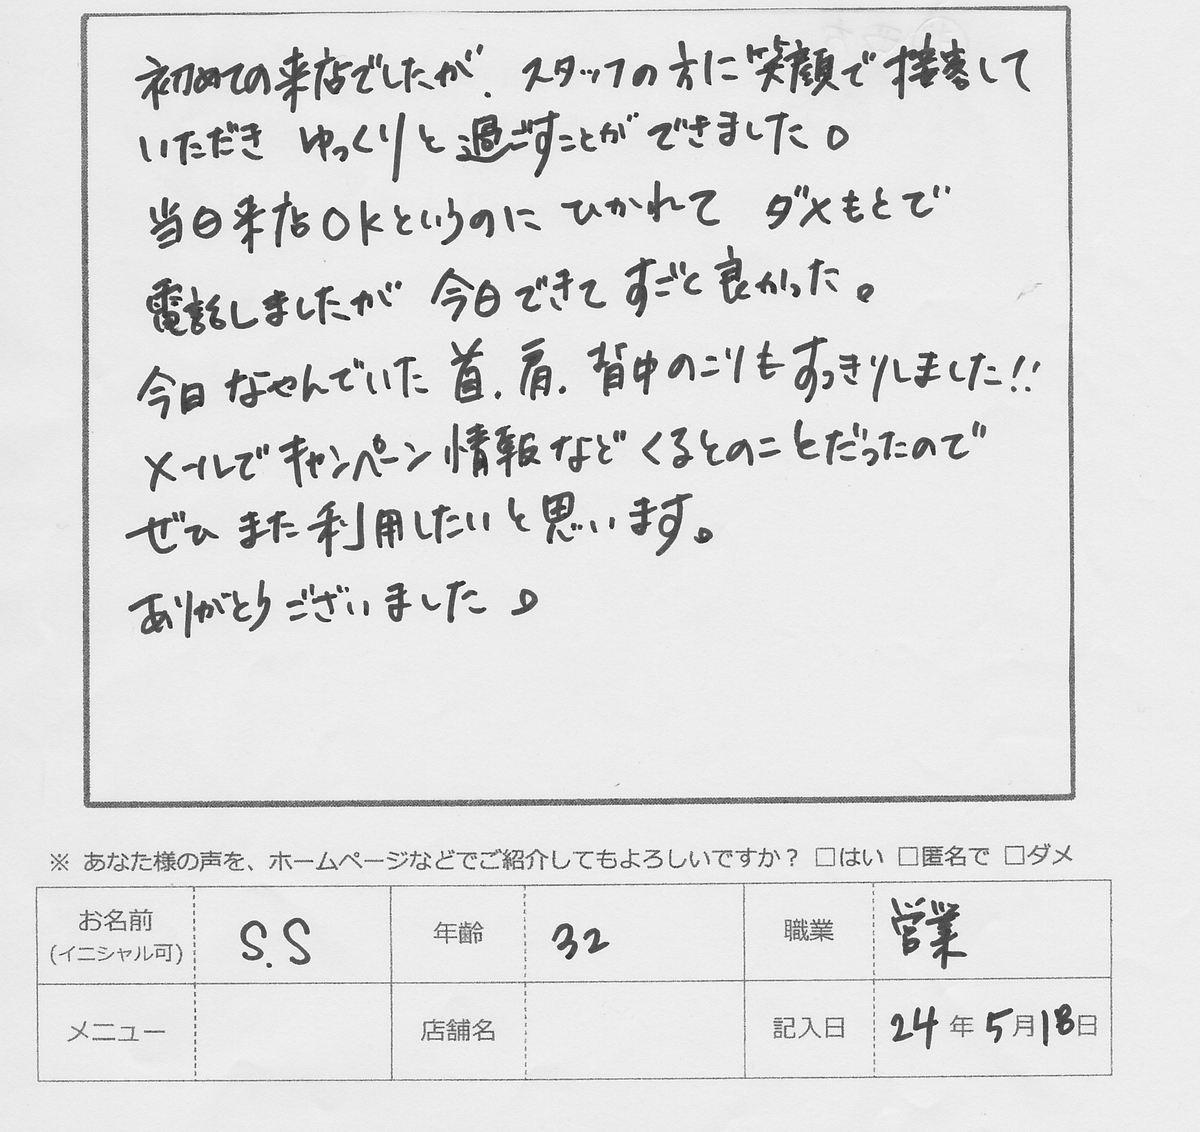 初めての来店でしたが、スタッフの方に笑顔で接客して
いただき ゆっくりと過ごすことができました。
当日来店OKというのに ひかれて ダメもとで
電話しましたが 今日できて すごと良かった。
今日 なやんでいた 首、肩、背中のこりも すっきりしました!!
メールで キャンペーン情報など くるとのことだったので
ぜひ また 利用したいと思います。
ありがとうございました。
※ あなた様の声を、ホームページなどでご紹介してもよろしいですか？ □はい □匿名で □ダメ
お名前 (イニシャル可) S.S 年齢 32 職業 営業
メニュー 店舗名 記入日 24年5月18日